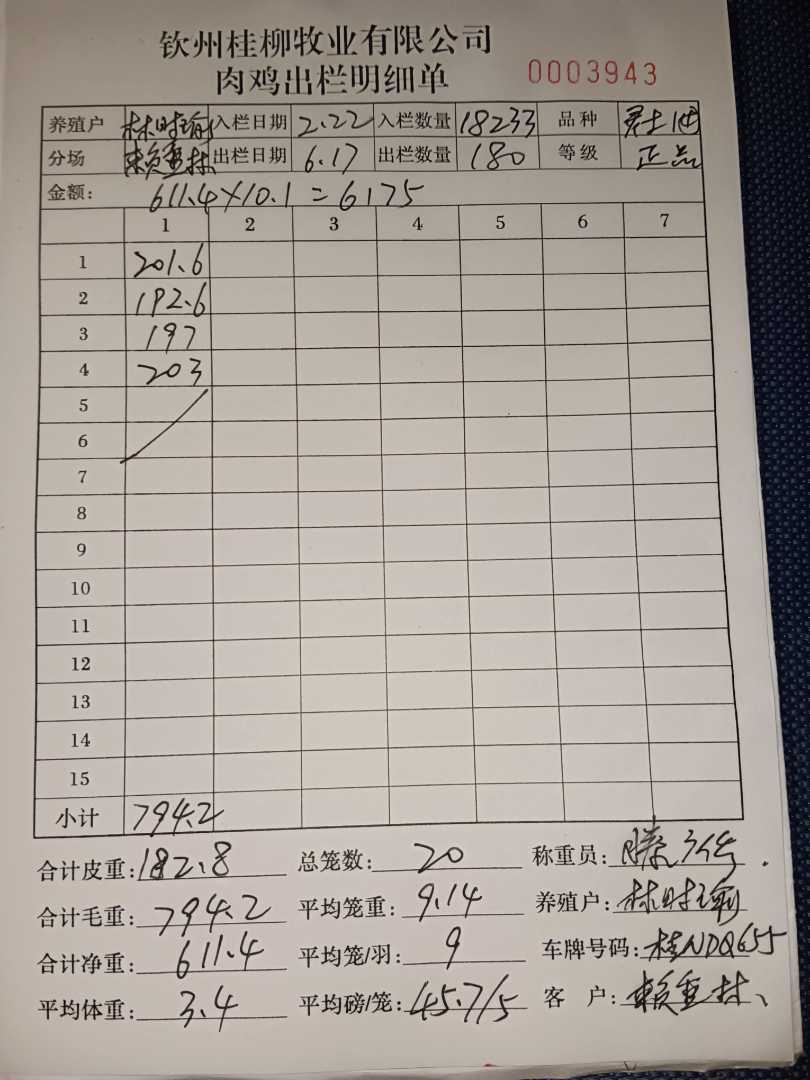 钦州桂柳牧业有限公司
肉鸡出栏明细单 0003943
养殖户 林时瑜 入栏日期 2.22 入栏数量 18233 品种
分场 赖重林 出栏日期 6.17 出栏数量 180 等级 正品
金额: 611.4×10.1=6175
1 2 3 4 5 6 7
1 201.6
2 192.6
3 197
4 203
5
6
7
8
9
10
11
12
13
14
15
小计 794.2
合计皮重: 182.8 总笼数: 20 称重员: 滕
合计毛重: 794.2 平均笼重: 9.14 养殖户: 林时瑜
合计净重: 611.4 平均笼/羽: 9 车牌号码: 桂NDQ655
平均体重: 3.4 平均磅/笼: 45.7/5 客 户: 赖重林